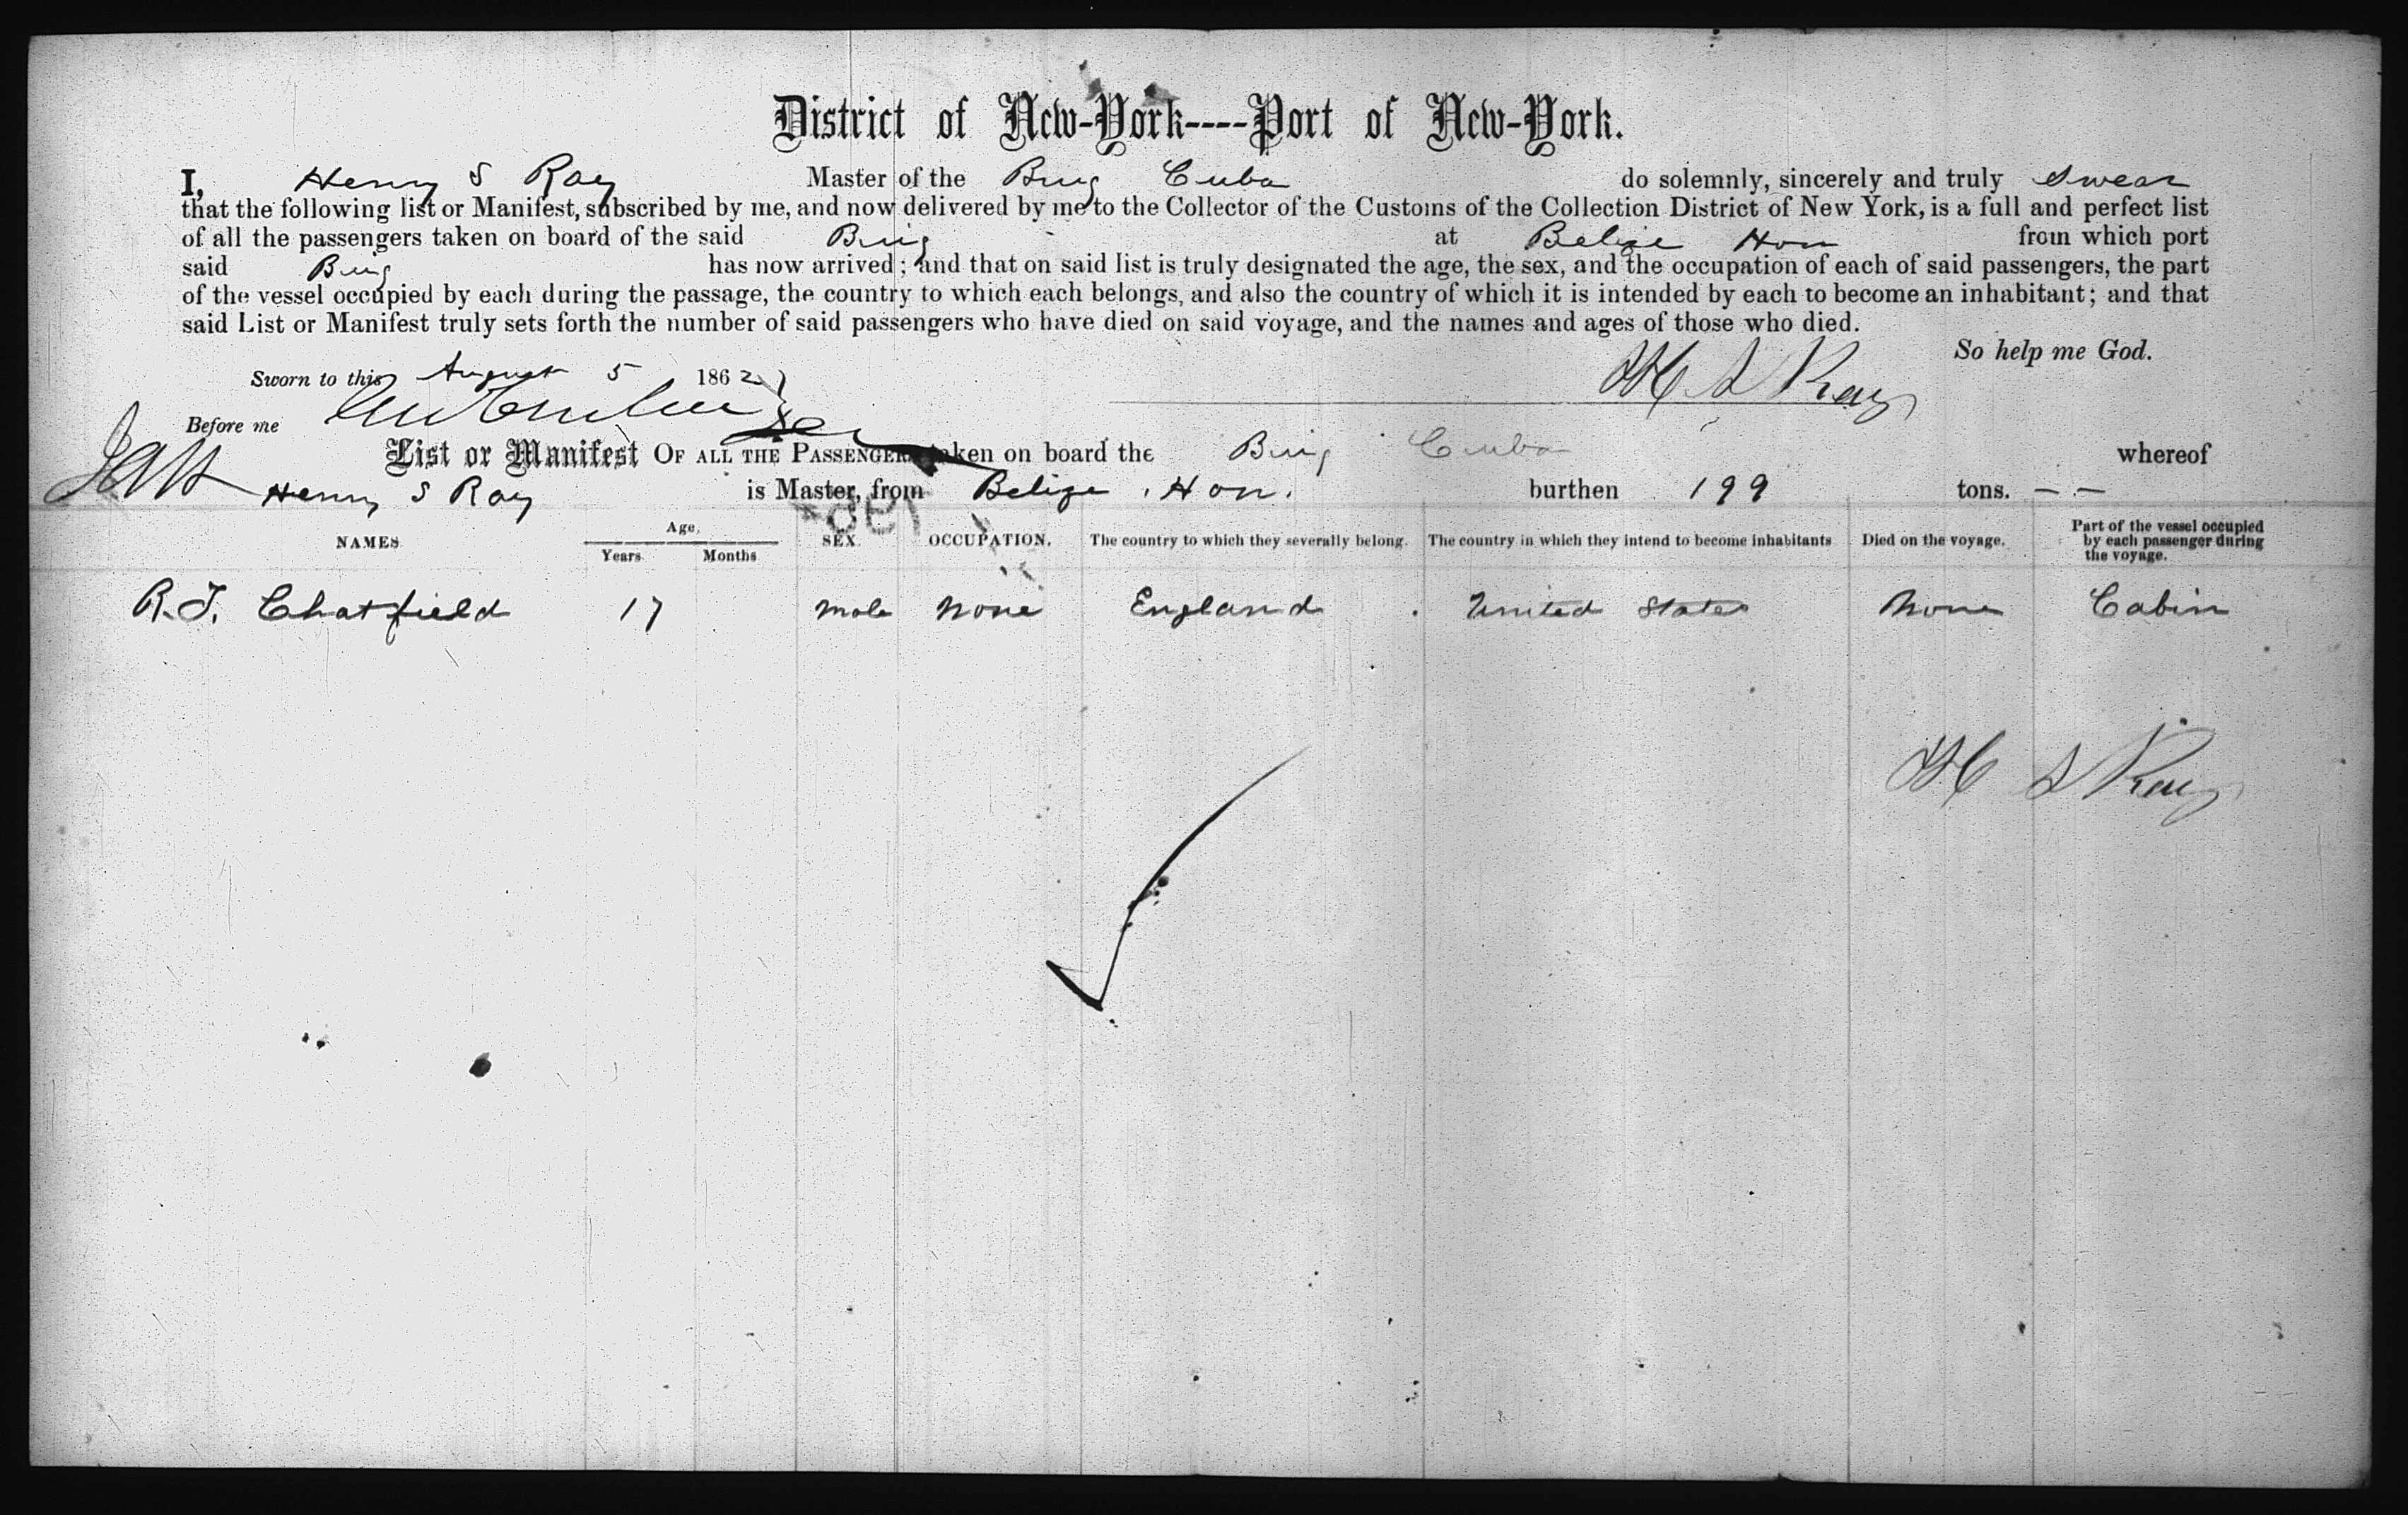 District of New-York----Port of New-York.
I, Henry S Ray Master of the Brig Cuba do solemnly, sincerely and truly swear
that the following list or Manifest, subscribed by me, and now delivered by me to the Collector of the Customs of the Collection District of New York, is a full and perfect list
of all the passengers taken on board of the said Brig at Belize Hon from which port
said Brig has now arrived; and that on said list is truly designated the age, the sex, and the occupation of each of said passengers, the part
of the vessel occupied by each during the passage, the country to which each belongs, and also the country of which it is intended by each to become an inhabitant; and that
said List or Manifest truly sets forth the number of said passengers who have died on said voyage, and the names and ages of those who died.
So help me God.
Sworn to this August 5 1862
H S Ray
Before me
List or Manifest OF ALL THE PASSENGERS taken on board the Brig Cuba whereof
Henry S Ray is Master, from Belize, Hon. burthen 199 tons. — —
NAMES. Age. Years. Months SEX. OCCUPATION. The country to which they severally belong. The country in which they intend to become inhabitants Died on the voyage. Part of the vessel occupied by each passenger during the voyage.
R. J. Chatfield 17 male none England United States None Cabin
H S Ray